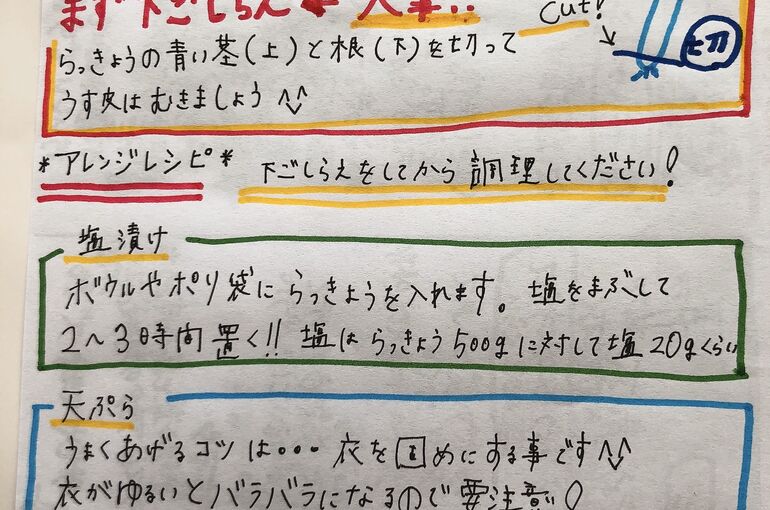 まず下ごしらえ 大事!!
Cut!
切
らっきょうの青い茎(上)と根(下)を切って
うす皮はむきましょう^^
*アレンジレシピ* 下ごしらえをしてから調理してください!
塩漬け
ボウルやポリ袋にらっきょうを入れます。塩をまぶして
2〜3時間置く!! 塩はらっきょう500gに対して塩20gくらい
天ぷら
うまくあげるコツは・・・衣を固めにする事です^^
衣がゆるいとバラバラになるので要注意!